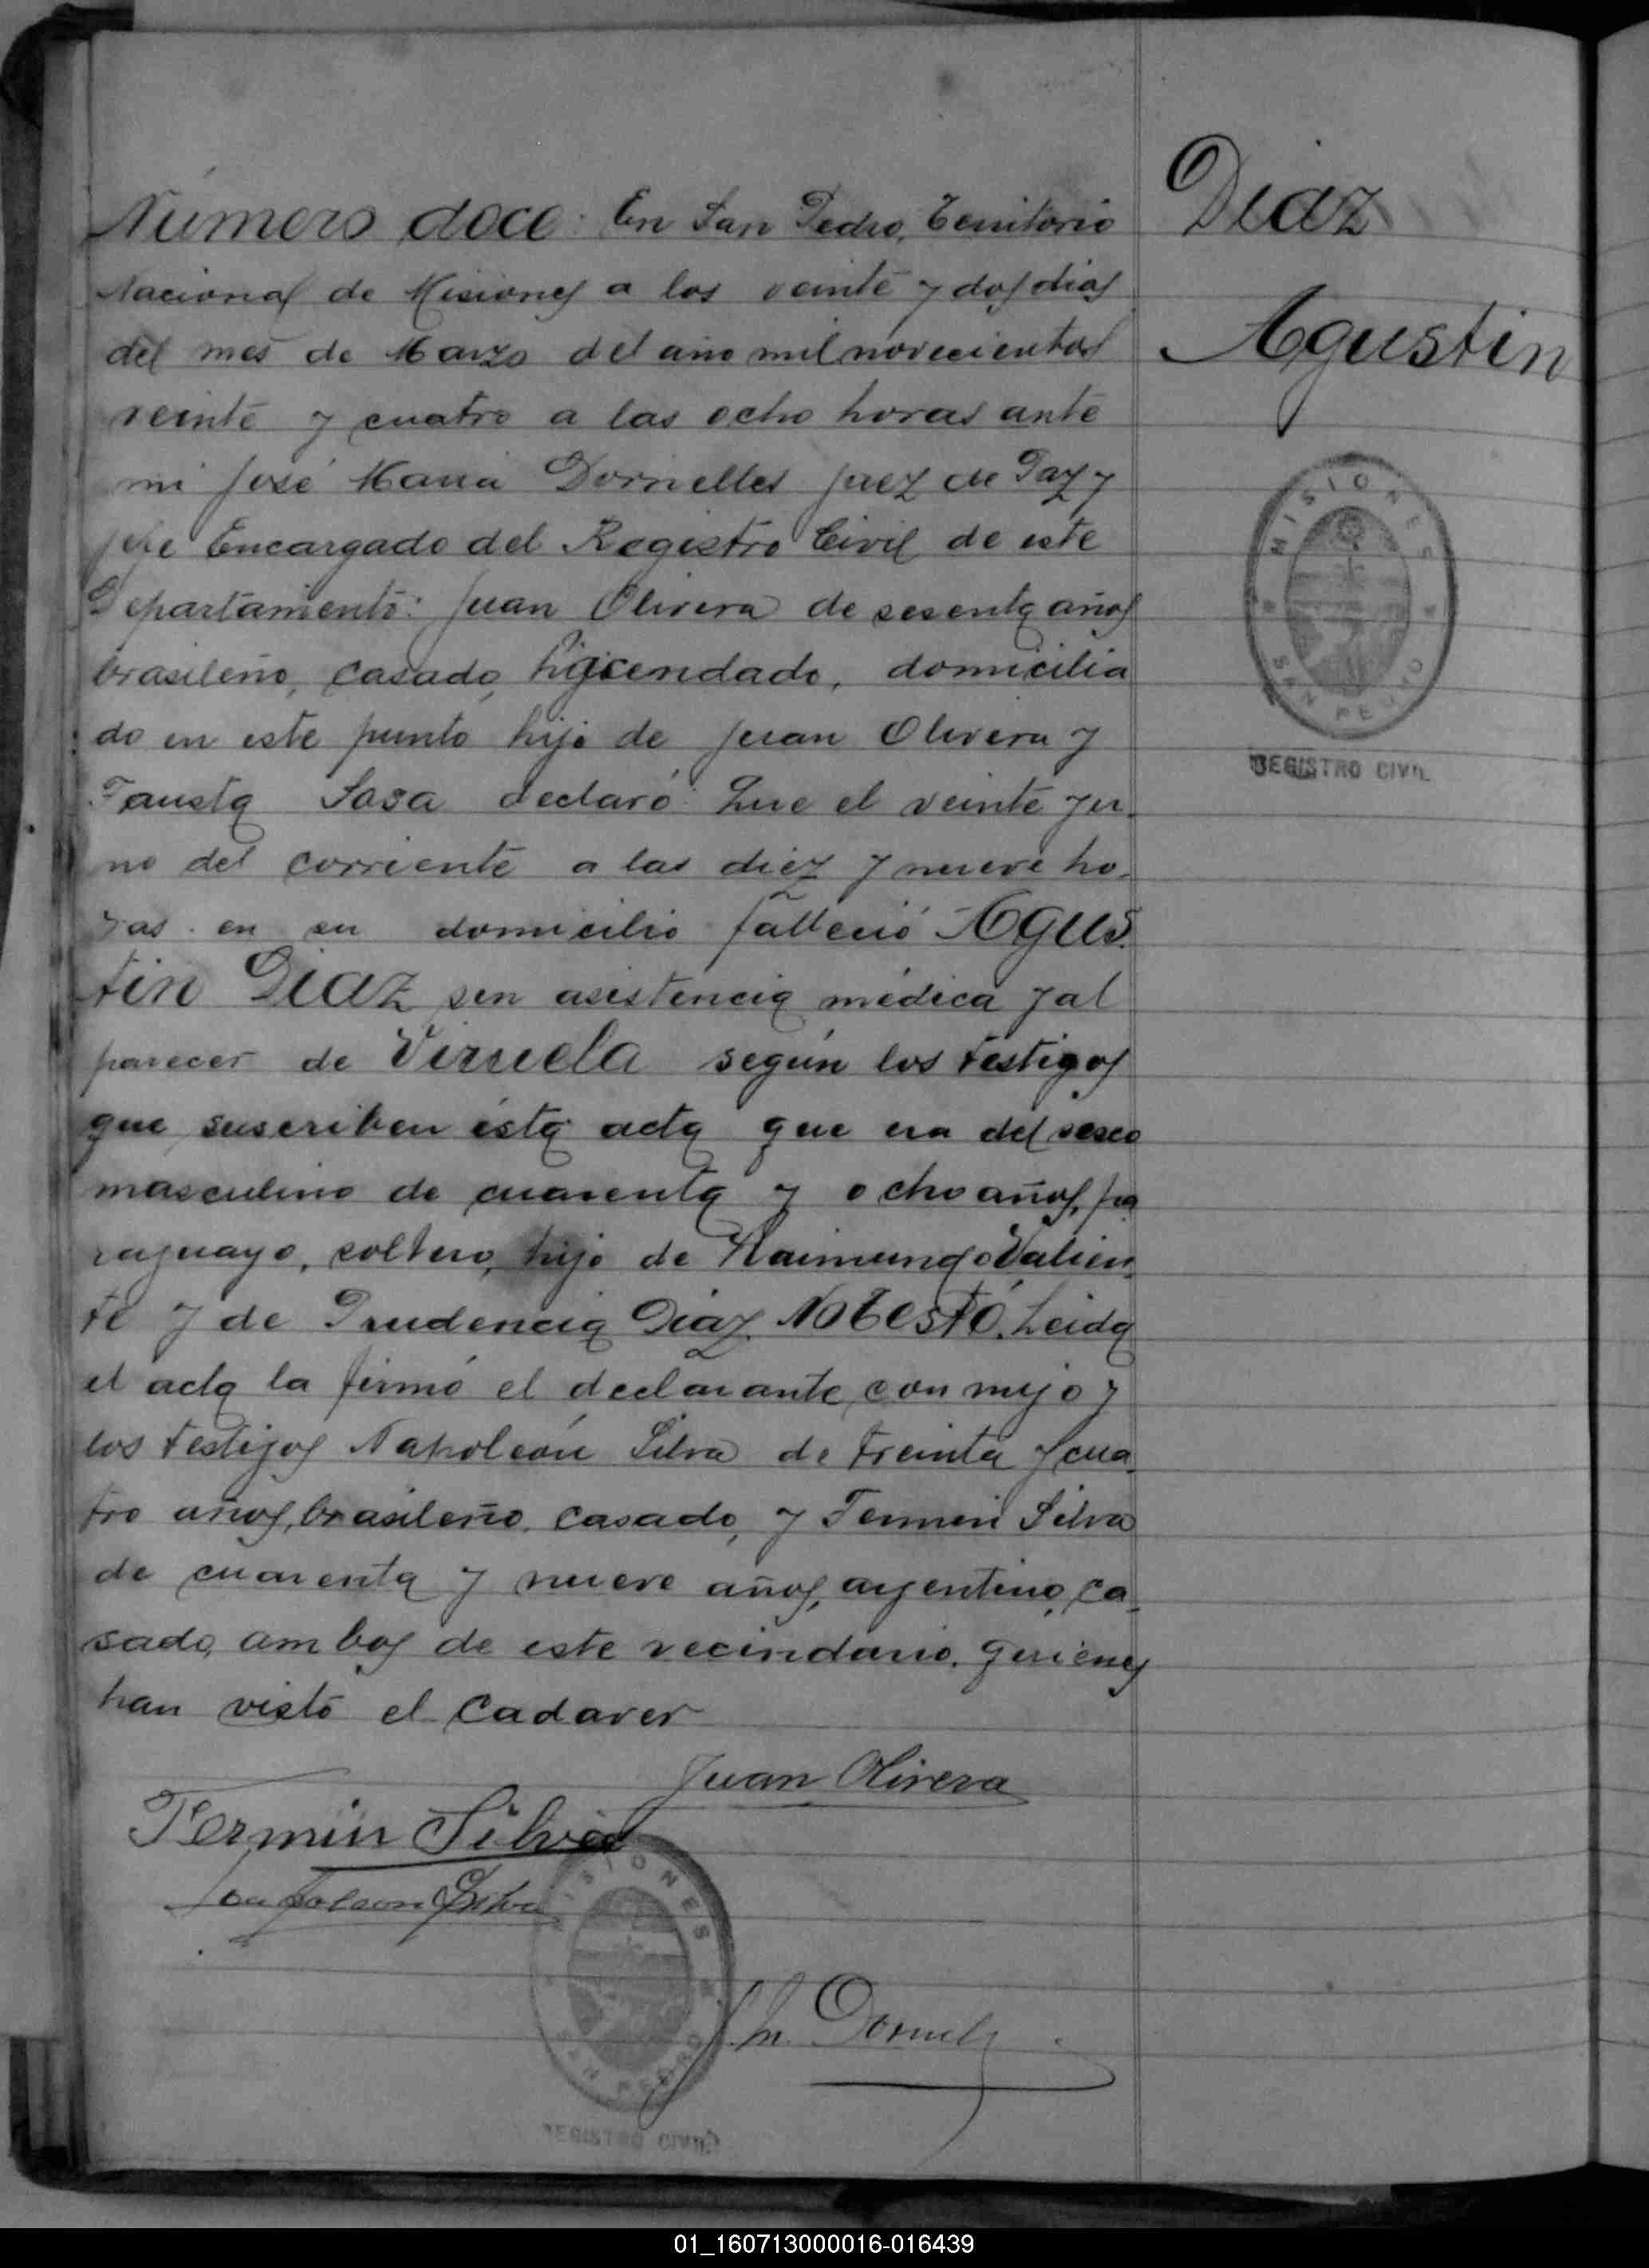 Número doce: En San Pedro, Territorio
Nacional de Misiones a los veinte y dos dias
del mes de Marzo del año mil novecientos
veinte y cuatro a las ocho horas ante
mi José Maria Dornelles Juez de Paz y
Jefe Encargado del Registro Civil de este
Departamento: Juan Olivera de sesenta años
brasileño, casado, hacendado, domicilia
do en este punto hijo de Juan Olivera y
Fausta Sosa declaró: Que el veinte y u-
no del corriente a las diez y nueve ho-
ras en su domicilio falleció AGUS-
tin Diaz sin asistencia médica y al
parecer de Viruela según los testigos
que suscriben esta acta que era del sexo
masculino de cuarenta y ocho años, pa
raguayo, soltero, hijo de Raimundo Valien-
te y de Prudencia Diaz. No testó. Leida
el acta la firmó el declarante, con migo y
los testigos Napoleón Silva de treinta y cua-
tro años, brasileño, casado, y Fermin Silva
de cuarenta y nueve años, argentino, ca-
sado, ambos de este vecindario, quienes
han visto el cadaver
Juan Olivera
Fermin Silva
Napoleon Silva
MISIONES
SAN PEDRO
REGISTRO CIVIL
J. M. Dornelles
Diaz
Agustin
MISIONES
SAN PEDRO
REGISTRO CIVIL
01_160713000016-016439